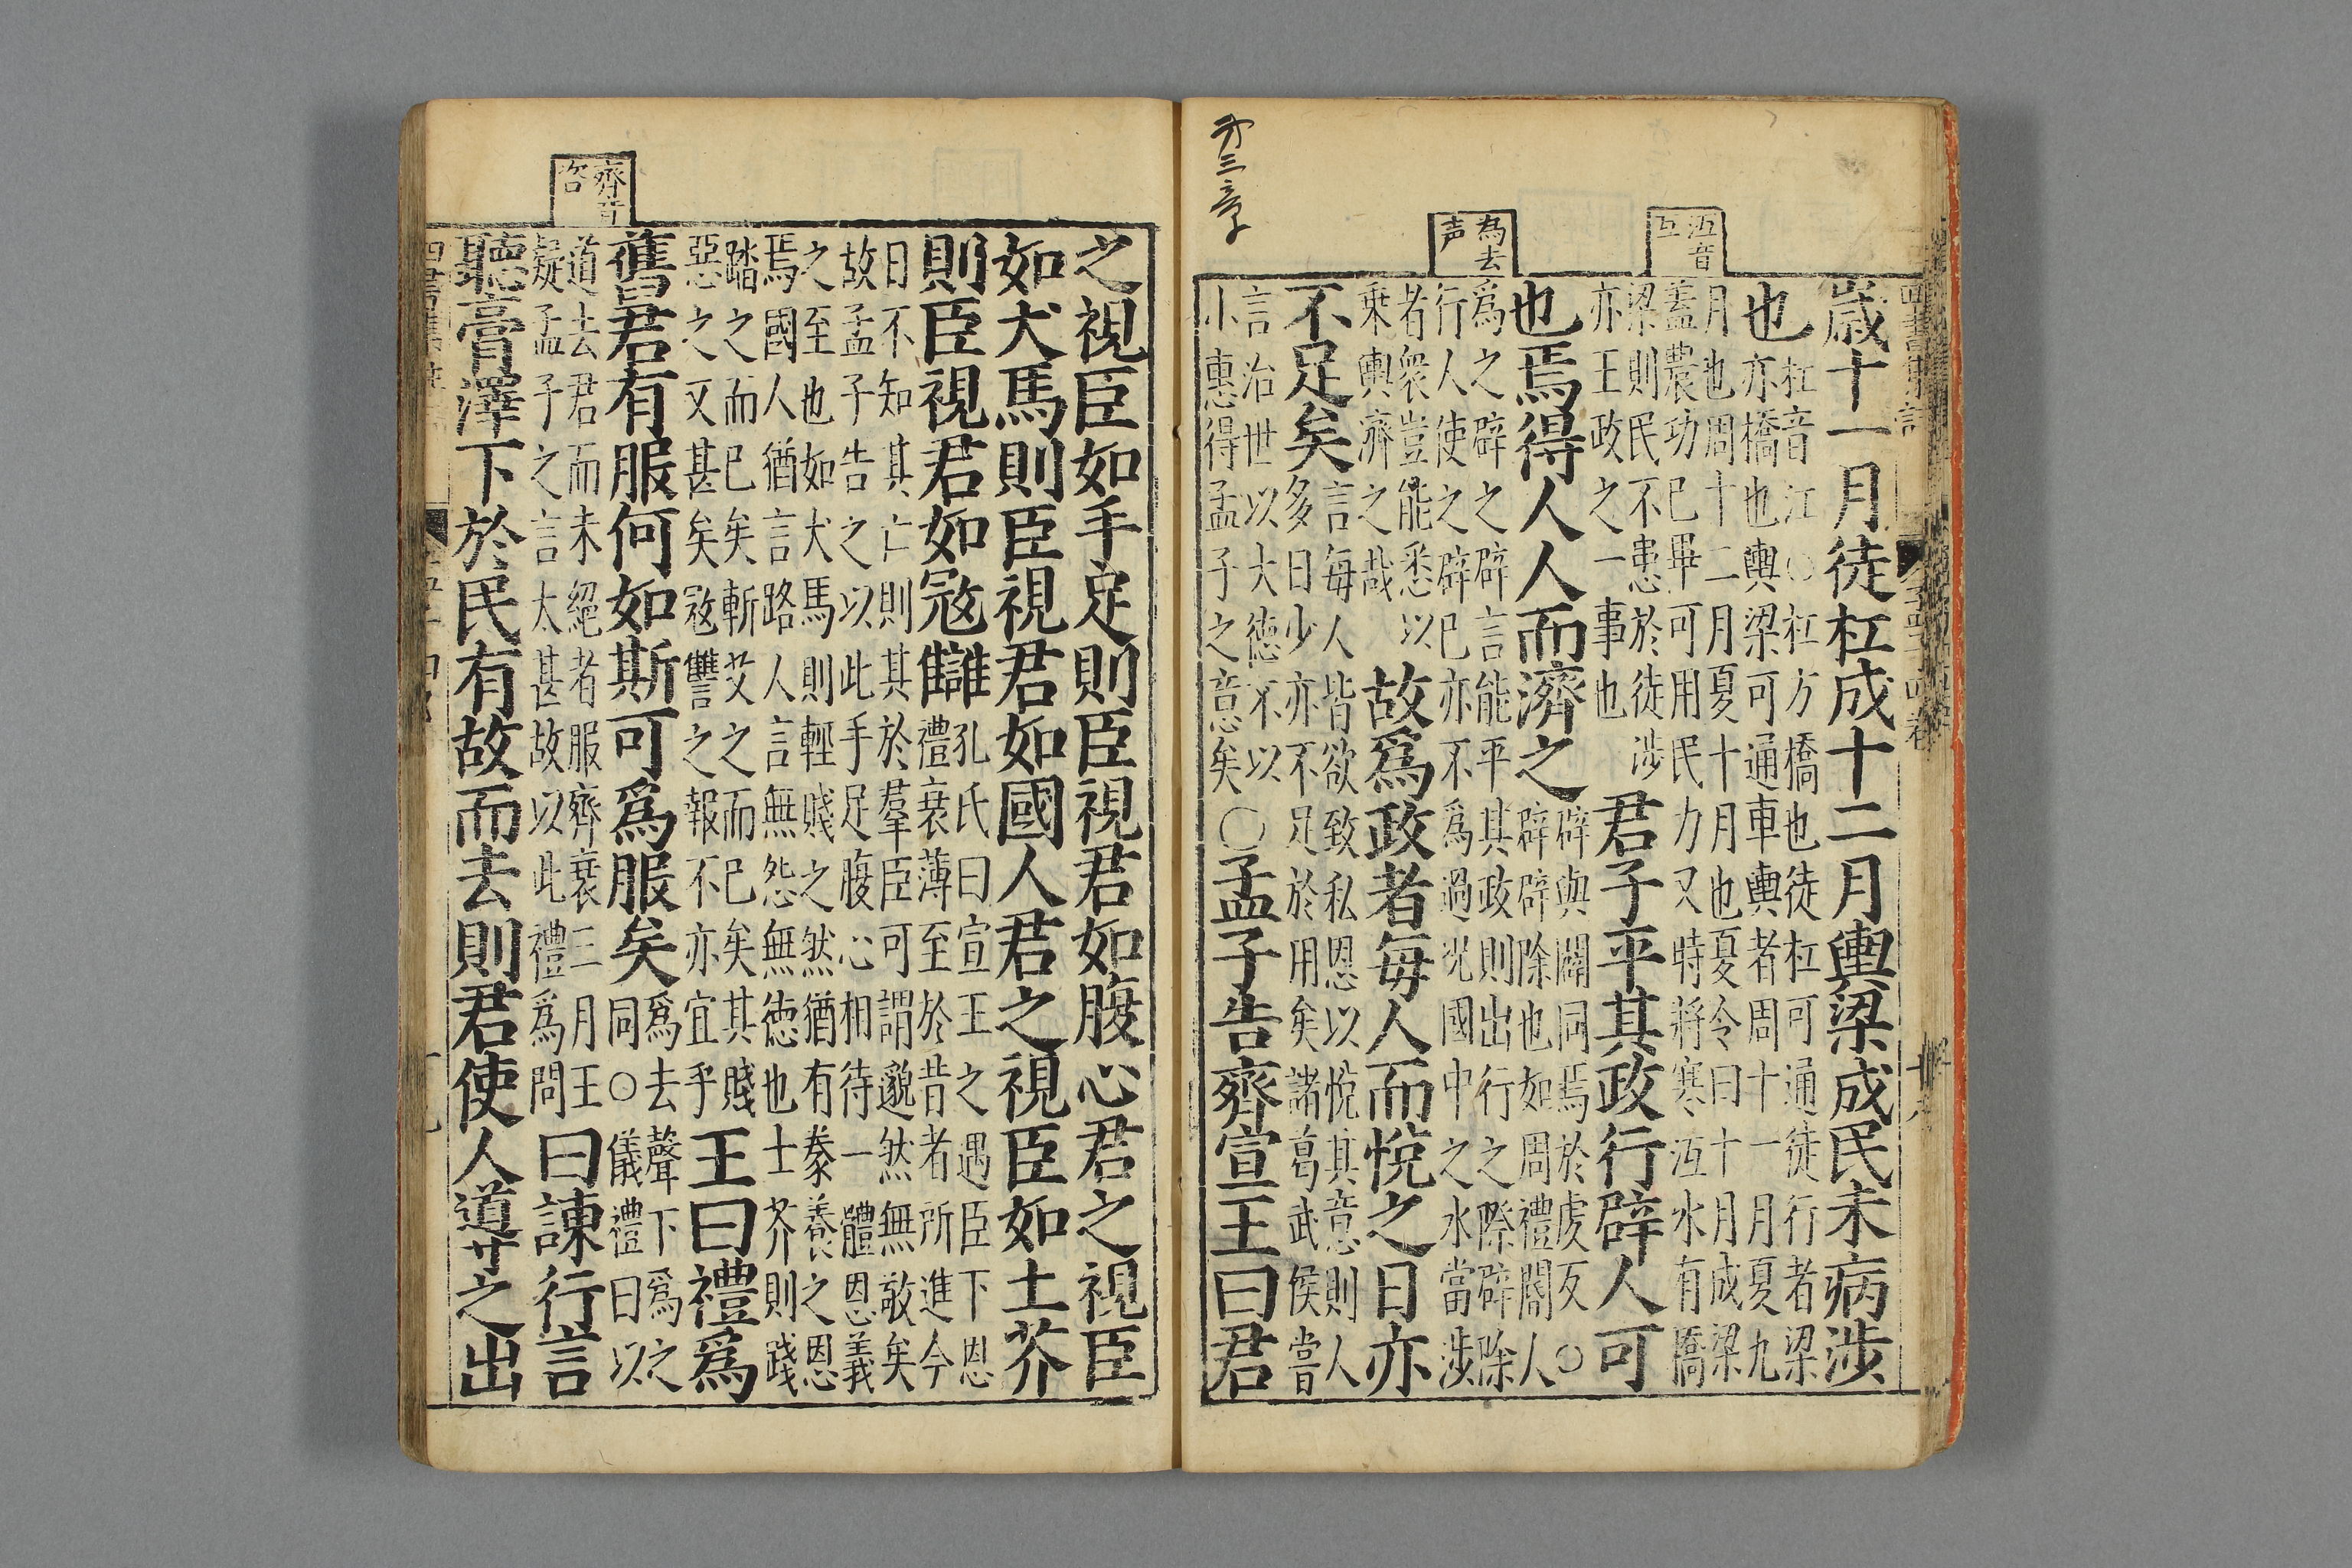 沍音
互
為去
声
歲十一月徒杠成十二月輿梁成民未病涉
也
杠音江○杠方橋也徒杠可通徒行者梁
亦橋也輿梁可通車輿者周十一月夏九
月也周十二月夏十月也夏令曰十月成梁
蓋農功已畢可用民力又特將寒沍水有橋
梁則民不患於徒涉
亦王政之一事也
君子平其政行辟人可
也焉得人人而濟之
辟與闢同焉於虔反○
辟辟除也如周禮閽人
爲之辟之辟言能平其政則出行之際辟除
行人使之辟已亦不爲過況國中之水當涉
者衆豈能悉以
乗輿濟之哉
故爲政者每人而悅之日亦
不足矣
言每人皆欲致私恩以悅其意則人
多日少亦不足於用矣諸葛武侯嘗
言治世以大徳不以
小惠得孟子之意矣
○孟子告齊宣王曰君
齊音
咨
之視臣如手足則臣視君如腹心君之視臣
如犬馬則臣視君如國人君之視臣如土芥
則臣視君如冦讎
孔氏曰宣王之遇臣下恩
禮衰薄至於昔者所進今
日不知其亡則其於羣臣可謂邈然無敬矣
故孟子告之以此手足腹心相待一體恩義
之至也如犬馬則輕賤之然猶有豢養之恩
焉國人猶言路人言無怨無徳也土芥則踐
踏之而已矣斬艾之而已矣其賤
惡之又甚矣冦讐之報不亦宜乎
王曰禮爲
舊君有服何如斯可爲服矣
爲去聲下爲之
同○儀禮曰以
道去君而未絕者服齊衰三月王
疑孟子之言太甚故以此禮爲問
曰諫行言
聽膏澤下於民有故而去則君使人道之出